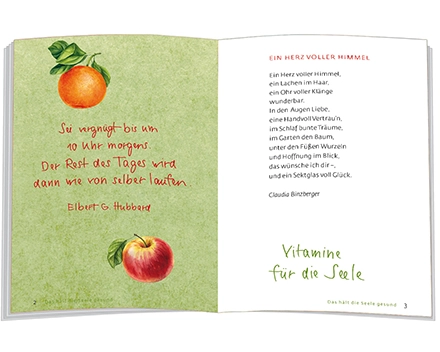 Sei vergnügt bis um
10 Uhr morgens.
Der Rest des Tages wird
dann wie von selber laufen.
Elbert G. Hubbard
2 Das hält die Seele gesund
EIN HERZ VOLLER HIMMEL
Ein Herz voller Himmel,
ein Lachen im Haar,
ein Ohr voller Klänge
wunderbar.
In den Augen Liebe,
eine Handvoll Vertrau'n,
im Schlaf bunte Träume,
im Garten den Baum,
unter den Füßen Wurzeln
und Hoffnung im Blick,
das wünsche ich dir –,
und ein Sektglas voll Glück.
Claudia Binzberger
Vitamine
für die Seele
Das hält die Seele gesund 3